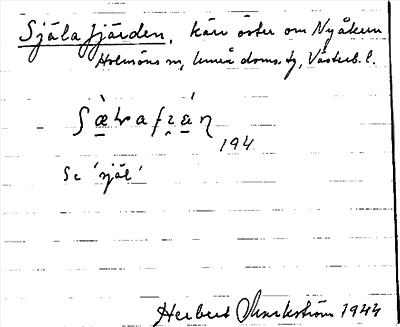 Själafjärden, kärr öster om Nyåkern
Holmöns sn, Umeå doms. tg, Västerb. l.
194
Se 'själ'
Herbert Markström 1944